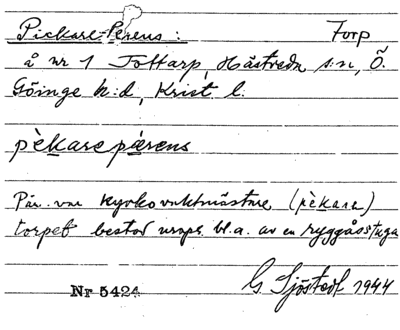 Pickare-Perens: Torp
å nr 1 Tottarp, Hästveda s:n, Ö.
Göinge h:d, Krist. l.
pèkarepærens
Pär var kyrkovaktmästare (pèkare)
torpet bestod urspr. bl.a. av en ryggåsstuga
Nr 5424 G. Sjöstedt 1944